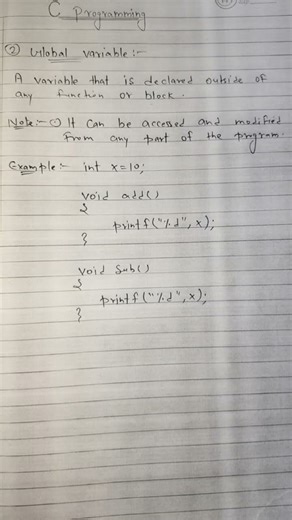 C Programming
② Global variable:-
A variable that is declared outside of
any function or block.
Note:- ① It can be accessed and modified
from any part of the program.
Example:- int x=10;
void add()
{
printf("%d", x);
}
void Sub()
{
printf("%d", x);
}